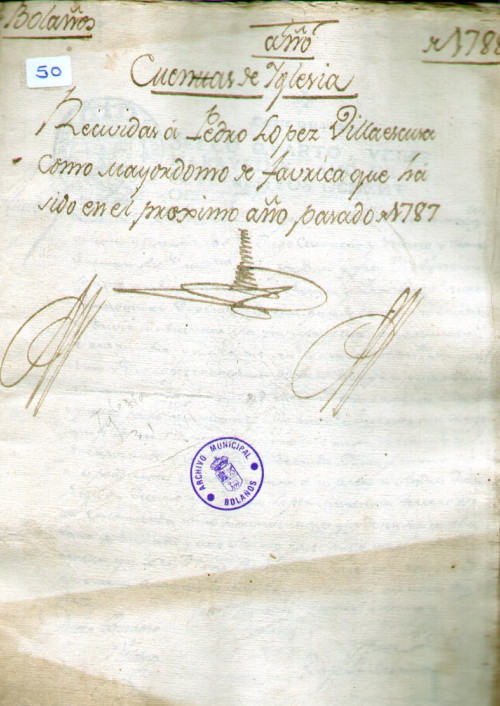 Bolaños
año
de 1788
50
Cuentas de Yglesia
Recividas á Pedro Lopez Villaescusa
Como mayordomo de favrica que há
sido en el proximo año pasado de 1787
ARCHIVO MUNICIPAL
BOLAÑOS